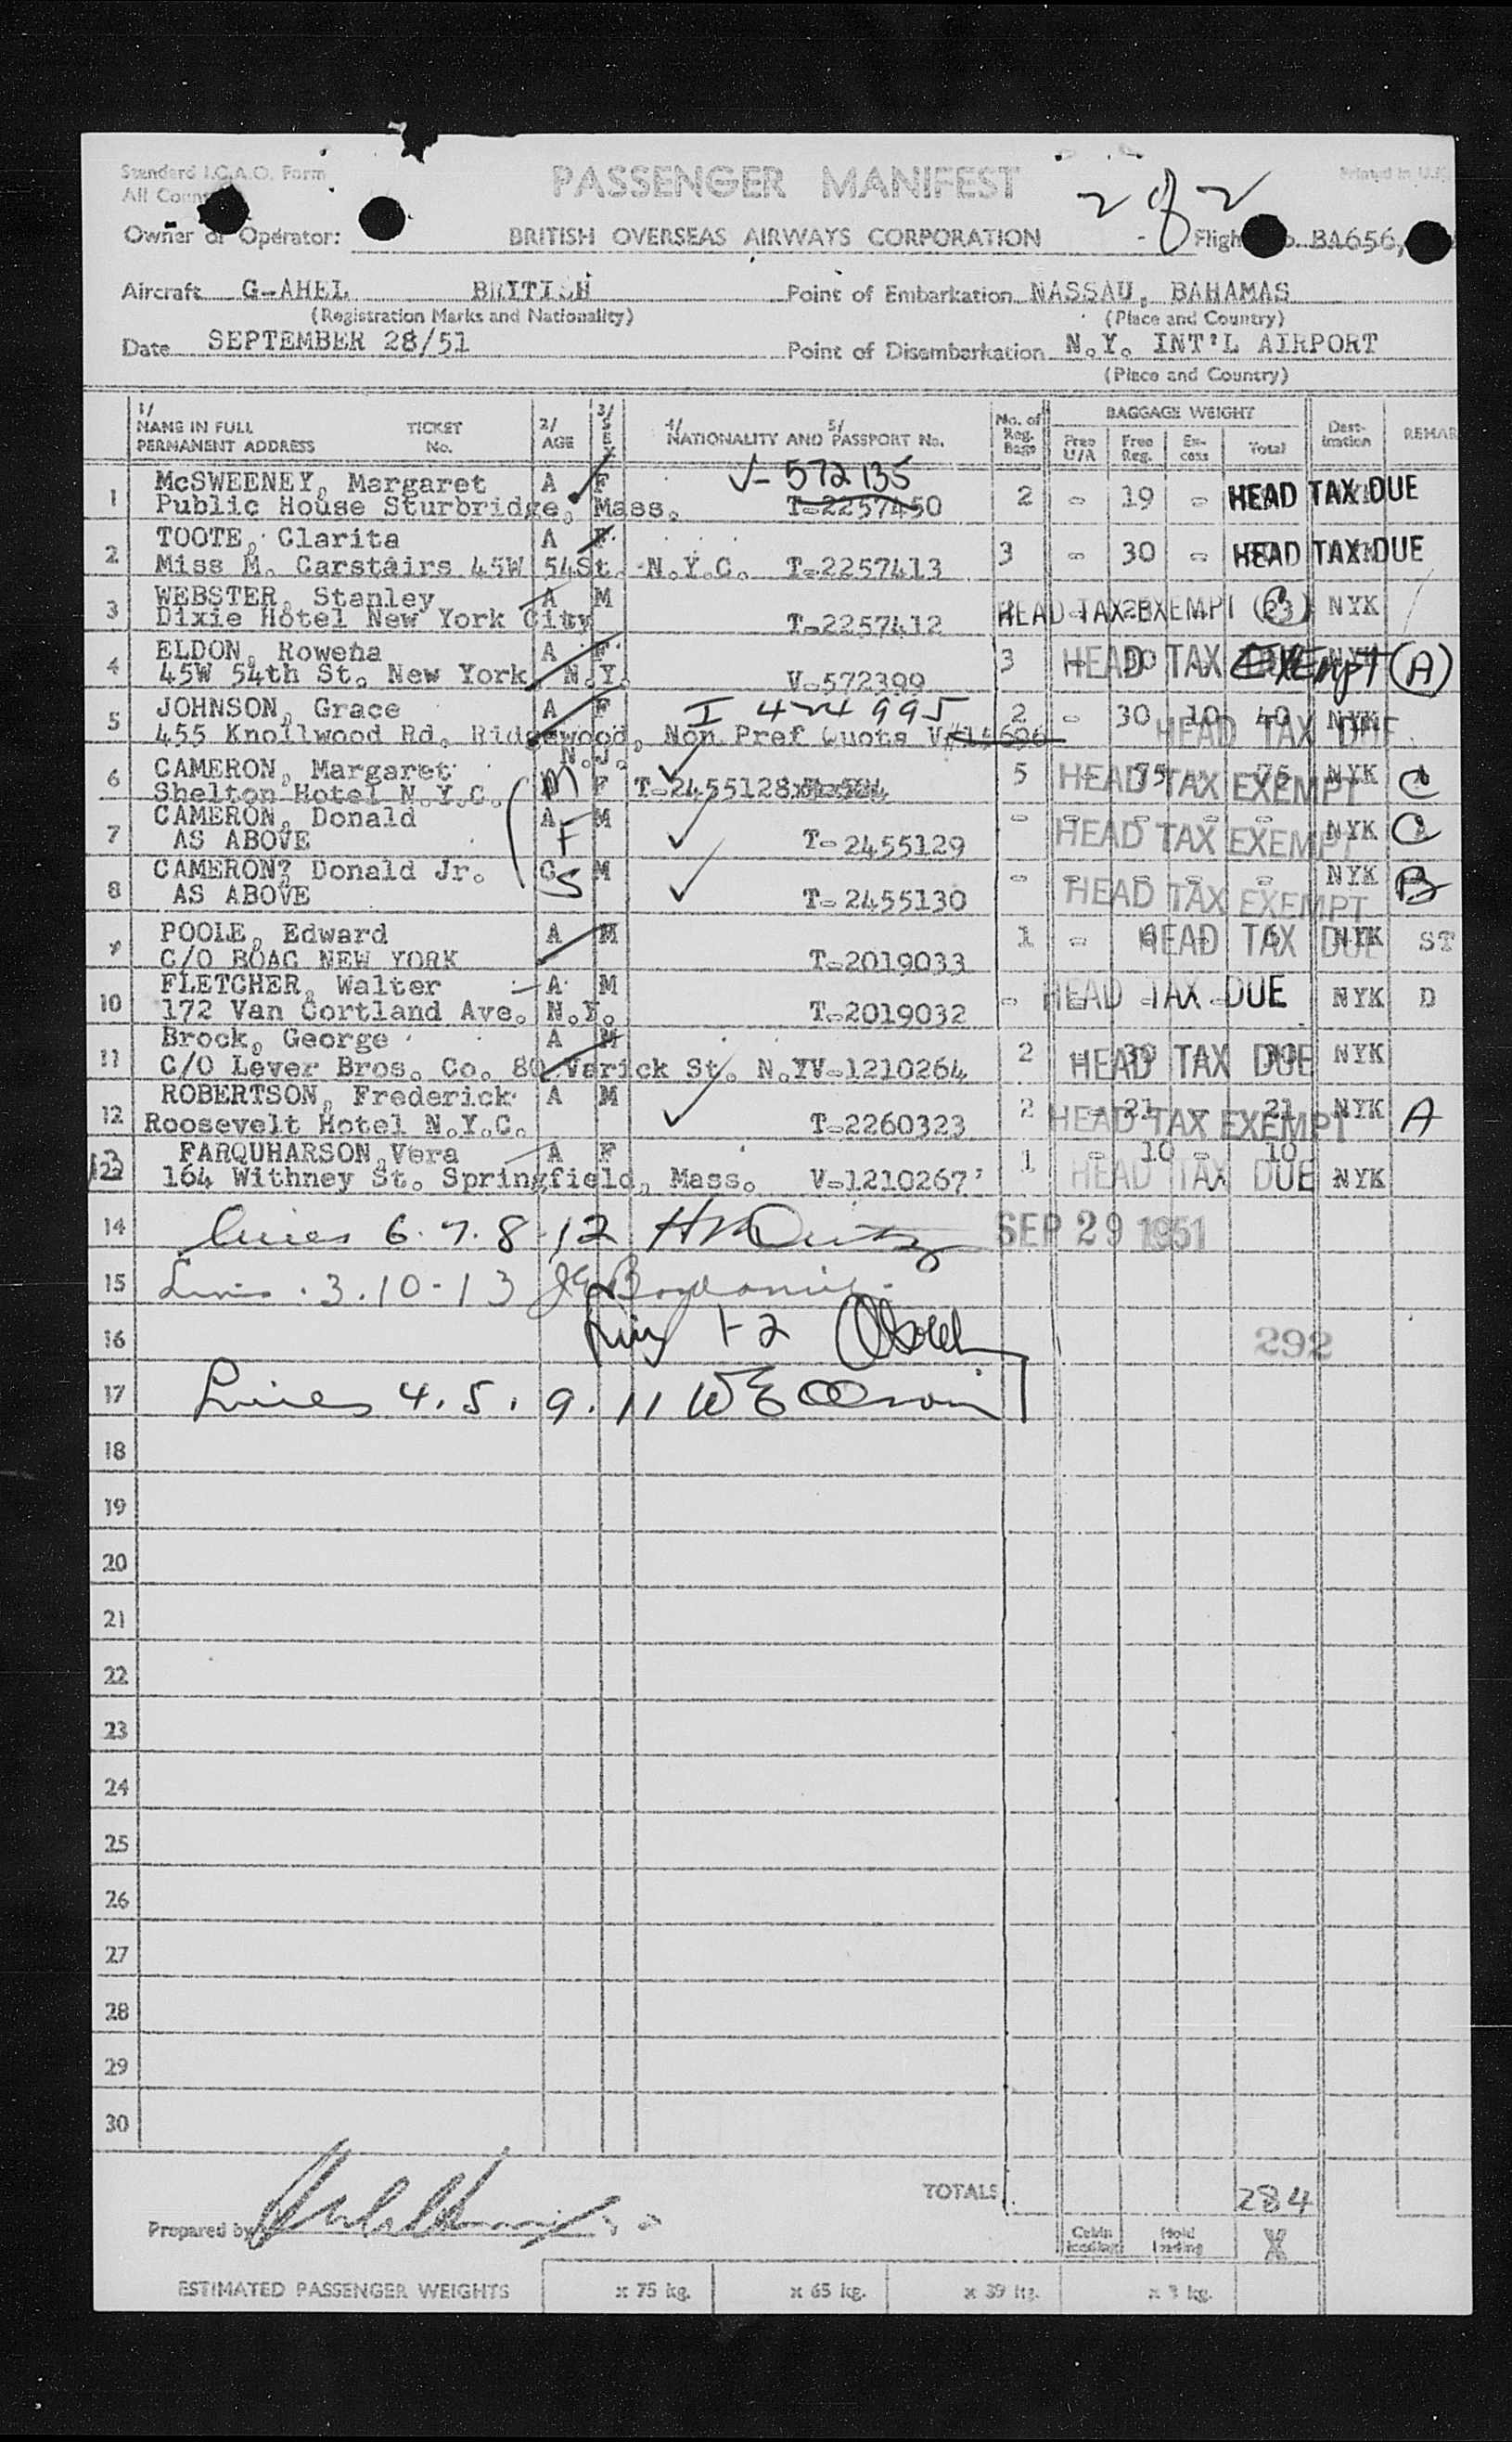 Standard I.C.A.O. Form
PASSENGER MANIFEST
2 of 2
Printed in U.K.
All
Owner or Operator: BRITISH OVERSEAS AIRWAYS CORPORATION BA656,
Aircraft G-AHEL BRITISH Point of Embarkation NASSAU, BAHAMAS
(Registration Marks and Nationality) (Place and Country)
Date SEPTEMBER 28/51 Point of Disembarkation N.Y. INT'L AIRPORT
(Place and Country)
1/ NAME IN FULL TICKET 2/ 3/ 4/ 5/ No. of BAGGAGE WEIGHT Dest-
PERMANENT ADDRESS No. AGE SEX NATIONALITY AND PASSPORT No. Reg. Bags Free U/A Free Reg. Ex-cess Total ination REMAR
V-572135
1 McSWEENEY, Margaret A F 2 - 19 - HEAD TAX DUE
Public House Sturbridge, Mass. T-2257450
2 TOOTE, Clarita A F 3 - 30 - HEAD TAX DUE
Miss M. Carstairs 45W 54St. N.Y.C. T-2257413
3 WEBSTER, Stanley A M HEAD TAX EXEMPT NYK
Dixie Hotel New York City T-2257412
4 ELDON, Rowena A F 3 HEAD TAX Exempt NYK (A)
45W 54th St. New York N.Y. V-572399
5 JOHNSON, Grace A F I 424995 2 - 30 10 40 NYK
455 Knollwood Rd. Ridgewood, Non Pref Quota HEAD TAX DUE
N.J.
6 CAMERON, Margaret M F T-2455128 5 - 75 - 75 NYK C
Shelton Hotel N.Y.C. HEAD TAX EXEMPT
7 CAMERON, Donald A F M - - - - - NYK C
AS ABOVE T-2455129 HEAD TAX EXEMPT
8 CAMERON? Donald Jr. S M - - - - - NYK B
AS ABOVE T-2455130 HEAD TAX EXEMPT
9 POOLE, Edward A M 1 - 6 - 6 NYK ST
C/O BOAC NEW YORK T-2019033 HEAD TAX DUE
10 FLETCHER, Walter A M - HEAD TAX DUE NYK D
172 Van Cortland Ave. N.Y. T-2019032
11 Brock, George A M 2 - 30 - 30 NYK
C/O Lever Bros. Co. 80 Varick St. N.Y V-1210264 HEAD TAX DUE
12 ROBERTSON, Frederick A M 2 - 21 - 21 NYK A
Roosevelt Hotel N.Y.C. T-2260323 HEAD TAX EXEMPT
13 FARQUHARSON, Vera A F 1 - 10 - 10
164 Withney St. Springfield, Mass. V-1210267 HEAD TAX DUE NYK
14 Lines 6.7.8.12 SEP 29 1951
15 Lines . 3.10-13
16 Lines 1-2 292
17 Lines 4.5.9.11
18
19
20
21
22
23
24
25
26
27
28
29
30
TOTALS 284
Prepared by
Cabin loading Hold loading X
ESTIMATED PASSENGER WEIGHTS x 75 kg. x 65 kg. x 39 kg. x 3 kg.